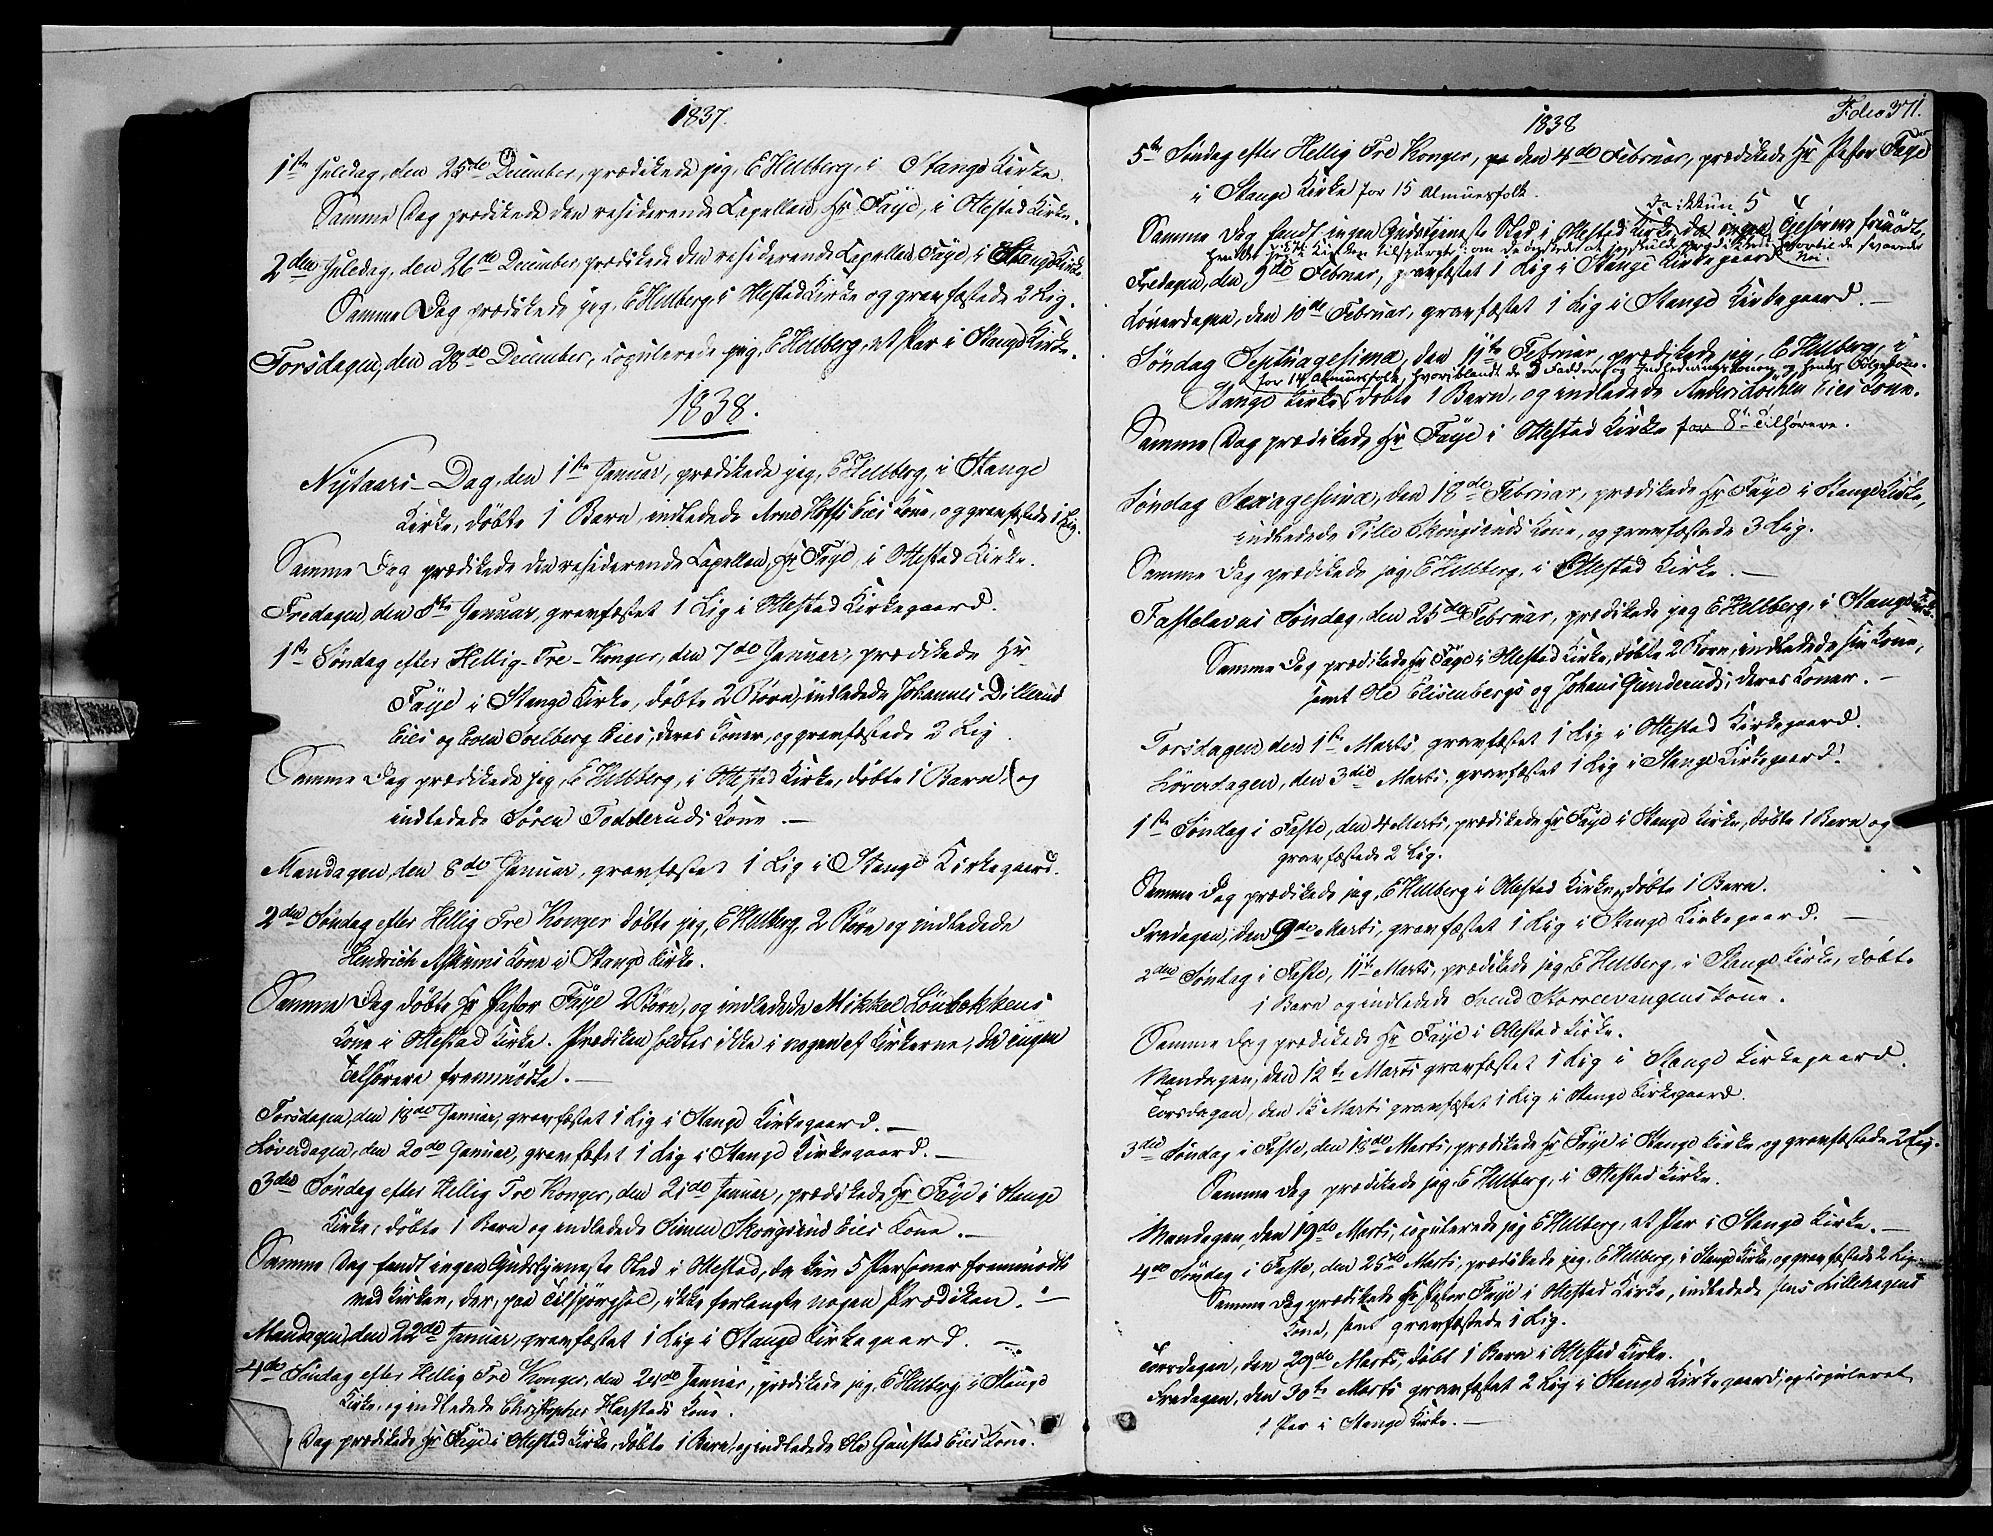 1837.
1ste Juledag, den 25de December, prædikede jeg, E Hellberg, i Stange Kirke.
Samme Dag prædikede den residerende Capellan, Hr Faye, i Ottestad Kirke.
2den Juledag, den 26de December prædikede den residerende Capellan Faye, i Stange Kirke
Samme Dag prædikede jeg, E Hellberg i Ottestad Kirke og gravfæstede 2 Lig.
Torsdagen, den 28de December, copulerede jeg, E Hellberg, et Par i Stange Kirke.
1838.
Nytaars-Dag, den 1ste Januar, prædikede jeg, E Hellberg, i Stange
Kirke, døbte 1 Barn, indledede Arne Hoffs Eies Kone, og gravfæstede 1 Lig.
Samme Dag prædikede den residerende Capellan, Hr Faye, i Ottestad Kirke.
Fredagen, den 5te Januar, gravfæstet 1 Lig i Ottestad Kirkegaard.
1ste Søndag efter Hellig-Tre-Konger, den 7de Januar, prædikede Hr
Faye i Stange Kirke, døbte 2 Børn, indledede Johannes Dillerud
Eies og Even Solberg Eies, deres Koner, og gravfæstede 2 Lig.
Samme Dag prædikede jeg, E Hellberg, i Ottestad Kirke, døbte 1 Barn, og
indledede Søren Todderuds Kone.—
Mandagen, den 8de Januar, gravfæstet 1 Lig i Stange Kirkegaard.
2den Søndag efter Hellig Tre Konger døbte jeg, E Hellberg, 2 Børn og indledede
Hendrich Askums Kone i Stange Kirke.
Samme Dag døbte Hr Pastor Faye 2 Børn, og indledede Mikkel Lønbekkens
Kone i Ottestad Kirke. Prædiken holdtes ikke i nogen af Kirkerne, da ingen
Tilhørere fremmødte.—
Torsdagen, den 18de Januar, gravfæstet 1 Lig i Stange Kirkegaard.—
Løverdagen, den 20de Januar, gravfæstet 1 Lig i Stange Kirkegaard.—
3die Søndag efter Hellig Tre Konger, den 21de Januar, prædikede Hr Faye i Stange
Kirke, døbte 1 Barn og indledede Simen Skougsrud Eies Kone.—
Samme Dag fandt ingen Gudstjeneste Sted i Ottestad, da kun 5 Personer fremmødte
ved Kirken, der, paa Tilspørgsel, ikke forlangte nogen Prædiken.—
Mandagen, den 22de Januar, gravfæstet 1 Lig i Stange Kirkegaard.—
4de Søndag efter Hellig Tre Konger, den 28de Januar, prædikede jeg, E Hellberg i Stange
Kirke, og indledede Christopher Harstads Kone.
Dag prædikede Hr Faye i Ottestad Kirke, døbte 1 Barn, og indledede Ole Gaustad Eies Kone.
1838
Folio 371.
5te Søndag efter Hellig Tre Konger, den 4de Februar, prædikede Hr Pastor Faye
i Stange Kirke for 15 Almuesfolk.
da ikkun 5
Samme Dag fandt ingen Gudstjeneste Sted i Ottestad Kirke da ingen Tilhørere fremmødte,
ved Kirken tilspurgt: om de ønskede at jeg skulde prædike; hvortil de svarede Nei.
Fredagen, den 9de Februar, gravfæstet 1 Lig i Stange Kirkegaard
Løverdagen, den 10de Februar, gravfæstet 1 Lig i Stange Kirkegaard.—
Søndag Septuagesima, den 11te Februar, prædikede jeg, E Hellberg, i
for 14 Almuesfolk, hvoriblandt de 3 Faddere og Indledningskonen og hendes Følgekone.
Stange Kirke, døbte 1 Barn, og indledede Anders Løchen Eies Kone.
Samme Dag prædikede Hr Faye i Ottestad Kirke for 8 Tilhørere.
Søndag Sexagesima, den 18de Februar, prædikede Hr Faye i Stange Kirke,
indledede Tille Skougsruds Kone, og gravfæstede 3 Lig.
Samme Dag prædikede jeg, E Hellberg, i Ottestad Kirke.—
Fastelavns Søndag, den 25de Februar, prædikede jeg E Hellberg, i Stange Kirke.
Samme Dag prædikede Hr Faye i Ottestad Kirke, døbte 2 Børn, indledede sin Kone,
samt Ole Elisenbergs og Johans Gunderuds, deres Koner.—
Torsdagen, den 1ste Marts gravfæstet 1 Lig i Ottestad Kirkegaard.
Løverdagen, den 3die Marts, gravfæstet 1 Lig i Stange Kirkegaard.
1ste Søndag i Faste, den 4 Marts, prædikede Hr Faye i Stange Kirke, døbte 1 Barn og
gravfæstede 2 Lig.
Samme Dag prædikede jeg, E Hellberg i Ottestad Kirke, døbte 1 Barn.
Fredagen, den 9de Marts, gravfæstet 1 Lig i Stange Kirkegaard.—
2den Søndag i Faste, 11te Marts, prædikede jeg, E Hellberg, i Stange Kirke, døbte
1 Barn og indledede Svend Skorreevangens Kone.
Samme Dag prædikede Hr Faye i Ottestad Kirke.
Mandagen, den 12te Marts gravfæstet 1 Lig i Stange Kirkegaard.
Torsdagen, den 15 Marts gravfæstet 1 Lig i Stange Kirkegaard.
3die Søndag i Faste, den 18de Marts, prædikede Hr Faye i Stange Kirke og gravfæstede 2 Lig.
Samme Dag prædikede jeg, E Hellberg, i Ottestad Kirke.
Mandagen, den 19de Marts, copulerede jeg E Hellberg, et Par i Stange Kirke.—
4de Søndag i Faste, den 25de Marts, prædikede jeg, E Hellberg, i Stange Kirke, og gravfæstede 2 Lig.
Samme Dag prædikede Hr Pastor Faye i Ottestad Kirke, indledede Jens Lillehagens
Kone, samt gravfæstede 1 Lig.
Torsdagen, den 29de Marts, døbt 1 Barn i Ottestad Kirke.
Fredagen, den 30te Marts gravfæstet 2 Lig i Stange Kirkegaard, og copuleret
1 Par i Stange Kirke.—